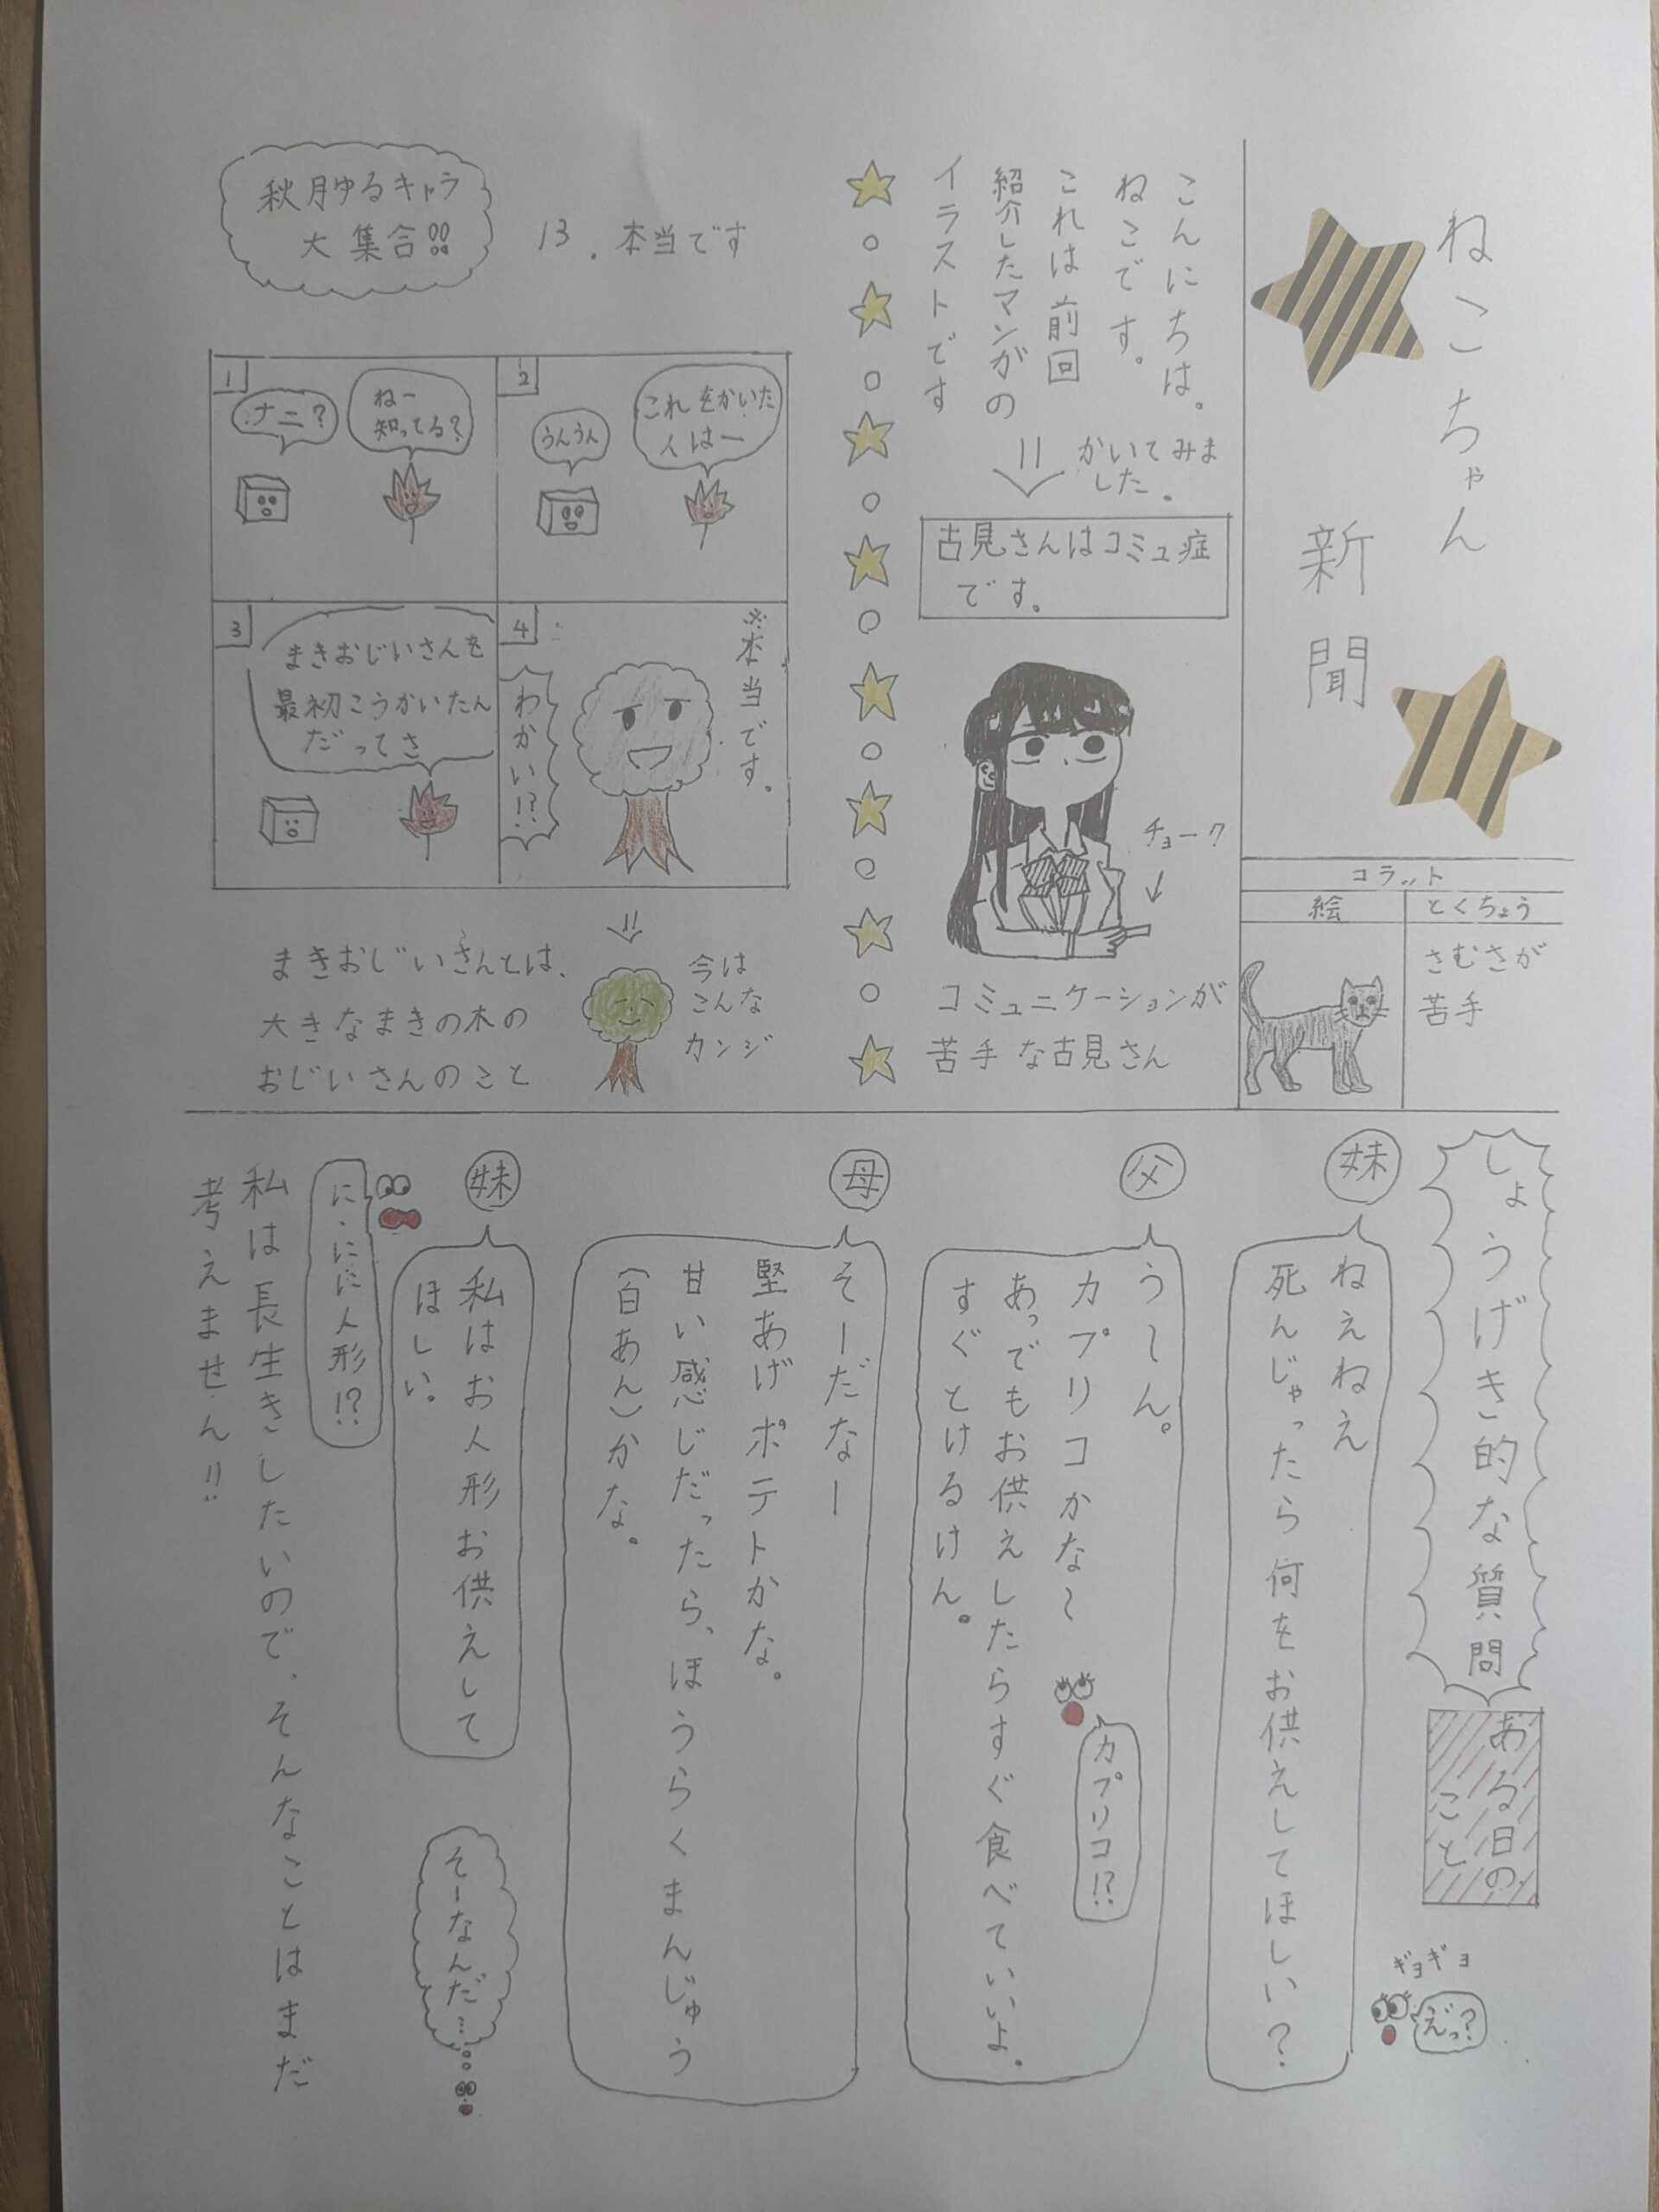 ねこちゃん
新聞
コラット
絵
とくちょう
さむさが
苦手
こんにちは。
ねこです。
これは前回
紹介したマンガの
イラストです
かいてみま
した。
古見さんはコミュ症
です。
チョーク
コミュニケーションが
苦手な古見さん
秋月ゆるキャラ
大集合!!
13.本当です
1
ねー
知ってる?
ナニ?
2
これをかいた
人はー
うんうん
3
まきおじいさんを
最初こうかいたん
だってさ
4
※本当です。
わかい!?
今は
こんな
カンジ
まきおじいさんとは、
大きなまきの木の
おじいさんのこと
しょうげき的な質問
ある日の
こと
妹
ねえねえ
死んじゃったら何をお供えしてほしい?
ギョギョ
えっ?
父
う〜ん。
カプリコかな〜
あっでもお供えしたらすぐ食べていいよ。
すぐとけるけん。
カプリコ!?
母
そーだなー
堅あげポテトかな。
甘い感じだったら、ほうらくまんじゅう
(白あん)かな。
妹
私はお人形お供えして
ほしい。
そーなんだ…
に、ににに人形!?
私は長生きしたいので、そんなことはまだ
考えません!!